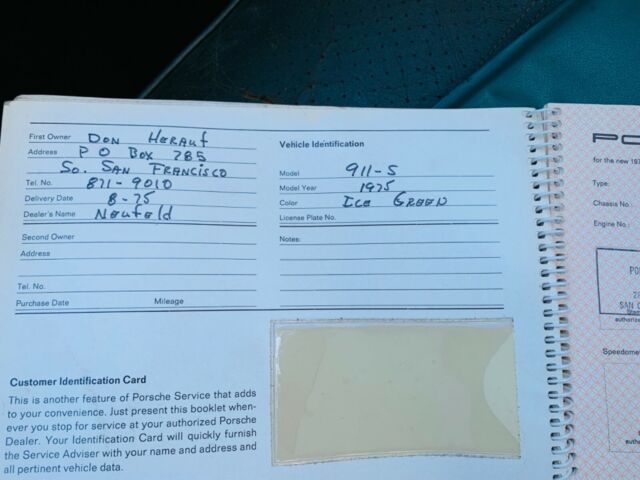 First Owner Don Herauf
Address P O Box 785
So. San Francisco
Tel. No. 871-9010
Delivery Date 8-75
Dealer's Name Neufeld
Second Owner
Address
Tel. No.
Purchase Date Mileage
Vehicle Identification
Model 911-S
Model Year 1975
Color Ice Green
License Plate No.
Notes:
Customer Identification Card
This is another feature of Porsche Service that adds
to your convenience. Just present this booklet when-
ever you stop for service at your authorized Porsche
Dealer. Your Identification Card will quickly furnish
the Service Adviser with your name and address and
all pertinent vehicle data.
for the new 197
Type:
Chassis No.
Engine No.
SAN
authorize
Speedome